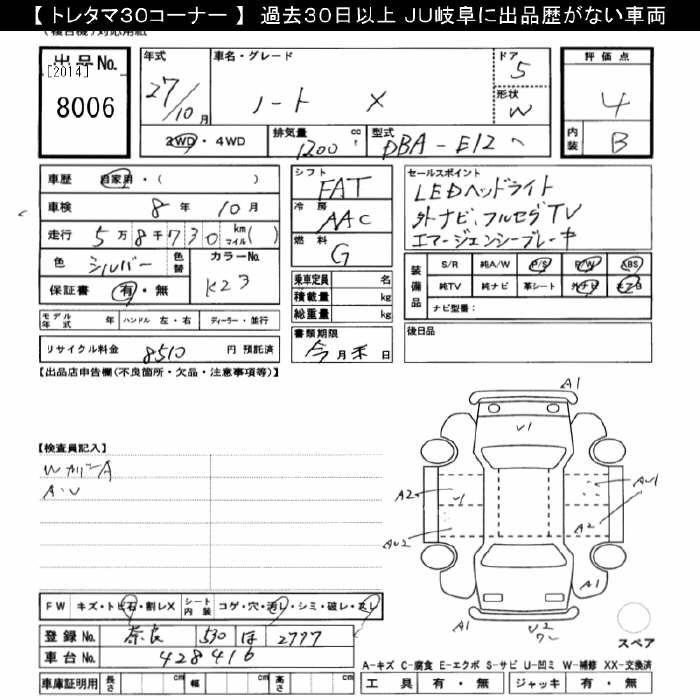 【 トレタマ30コーナー 】 過去30日以上 JU岐阜に出品歴がない車両
出品No.
[2014]
8006
年式
27/10月
車名・グレード
ノート X
ドア
5
形状
W
評価点
4
内装
B
2WD・4WD
排気量
1200 cc
型式
DBA-E12
車歴 自家用・( )
車検 8年 10月
走行 5万8千730 km マイル( )
色 シルバー 色替
カラーNo.
K23
保証書 有・無
モデル年式 年 ハンドル 左・右 ディーラー・並行
リサイクル料金 8510 円 預託済
シフト
FAT
冷房
AAC
燃料
G
乗車定員 名
積載量 kg
総重量 kg
書類期限
今月末日
セールスポイント
LEDヘッドライト
外ナビ、フルセグTV
エマージェンシーブレーキ
装備品
S/R 純A/W P/S P/W ABS
純TV 純ナビ 革シート 外ナビ エアB
ナビ型番:
後日品
【出品店申告欄(不良箇所・欠品・注意事項等)】
【検査員記入】
WカバーA
A・U
A1
V1
A2
V1
AU1
A2
AU2
A1
A1
U2
スペア
FW キズ・トビ石・割レX シート内装 コゲ・穴・汚レ・シミ・破レ・スレ
登録No. 奈良 530 ほ 2777
車台No. 428416
車庫証明用 長さ cm 幅 cm 高さ cm
A-キズ C-腐食 E-エクボ S-サビ U-凹ミ W-補修 XX-交換済
工具 有・無 ジャッキ 有・無